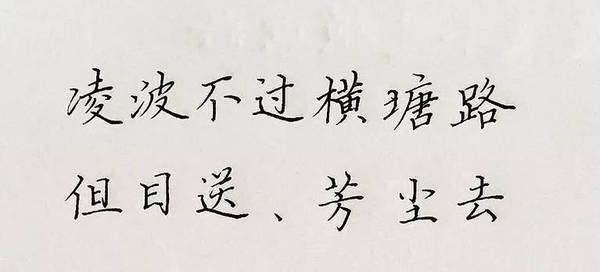 凌波不过横瑭路
但目送、芳尘去